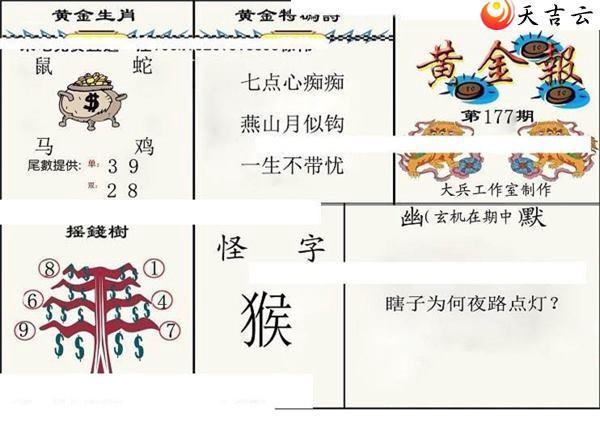 黄金生肖
鼠 蛇
马 鸡
尾數提供: 单: 3 9
双: 2 8
黄金特碼詩
七点心痴痴
燕山月似钩
一生不带忧
天吉云
黄金報
第177期
大兵工作室制作
摇錢樹
⑧ ①
⑥ ④
⑨ ⑦
怪 字
猴
幽(玄机在期中)默
瞎子为何夜路点灯?